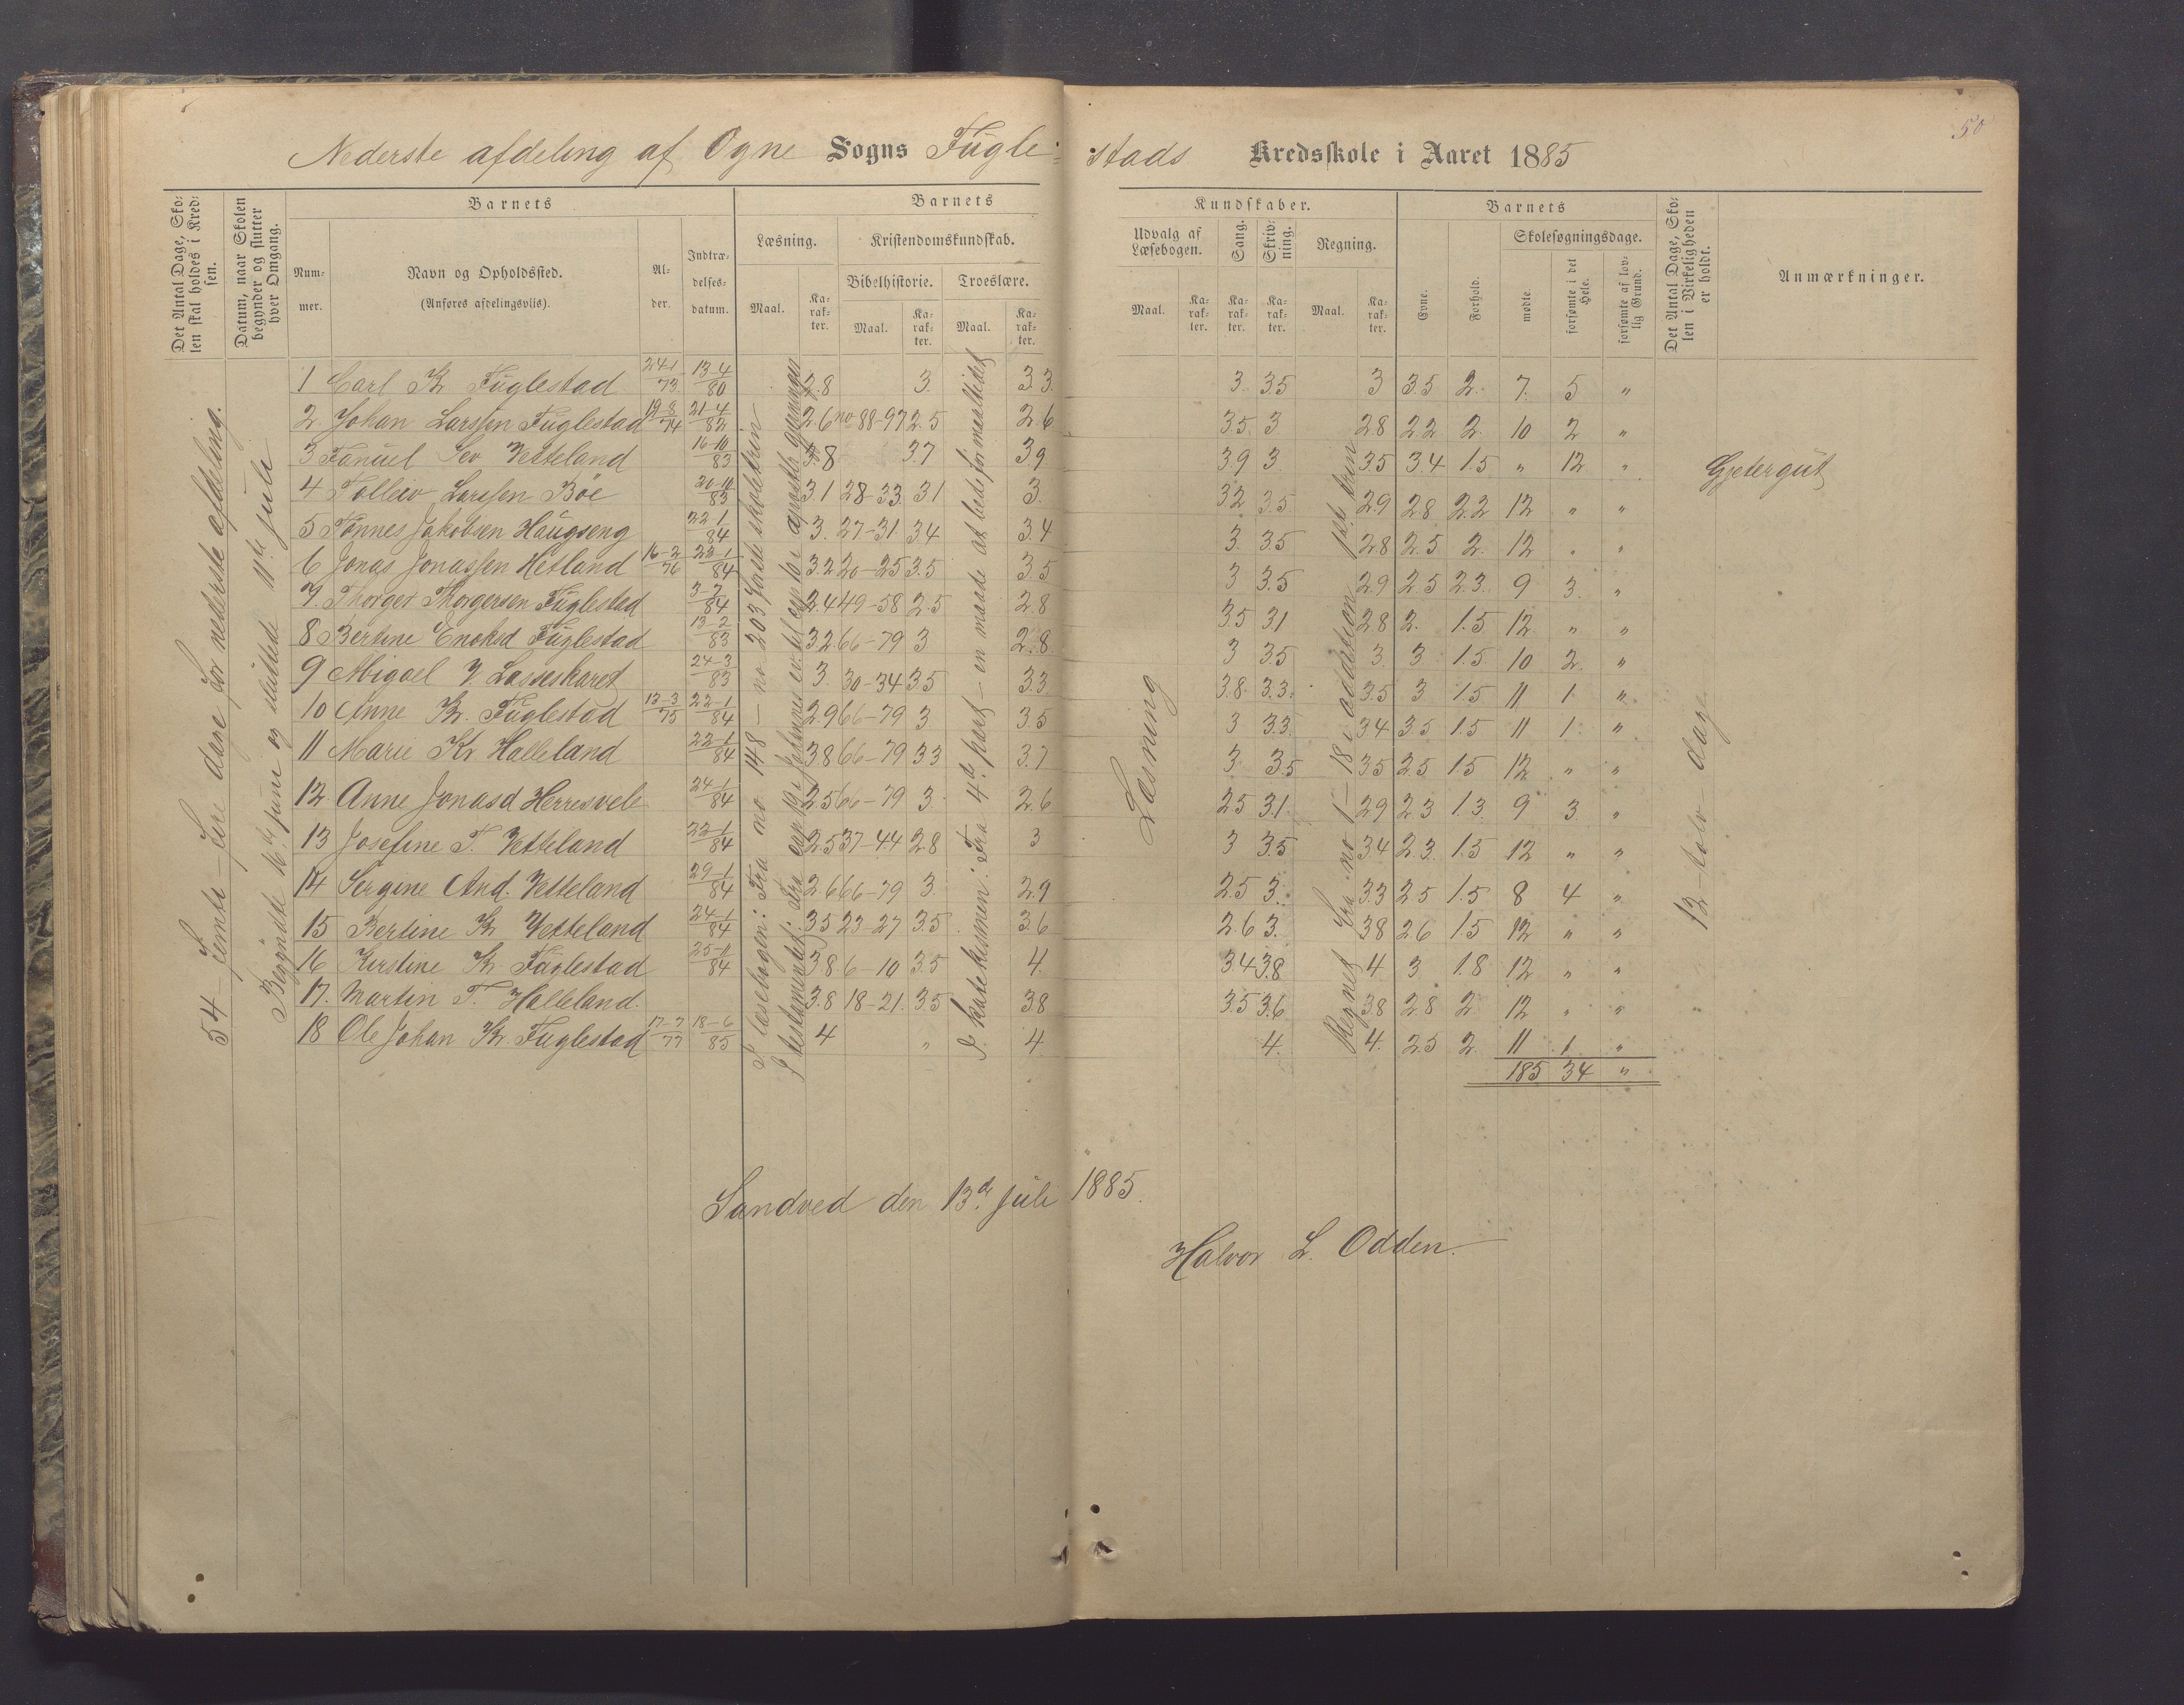 50
Nederste afdeling af Ogne Sogns Fügle-stads Kredsskole i Aaret 1885
Det Antal Dage, Skolen skal holdes i Kredsen.
Datum, naar Skolen begynder og slutter hver Omgang.
Barnets
Barnets
Kundskaber.
Barnets
Det Antal Dage, Skolen i Virkeligheden er holdt.
Anmærkninger.
Nummer.
Navn og Opholdssted.
(Anføres afdelingsvis).
Alder.
Indtrædelsesdatum.
Læsning.
Kristendomskundskab.
Udvalg af Læsebogen.
Sang.
Skrivning.
Regning.
Evne.
Forhold.
Skolesøgningsdage.
Bibelhistorie.
Troeslære.
mødte.
forsømte i det Hele.
forsømte af lovlig Grund.
Maal. Karakter. Maal. Karakter. Maal. Karakter. Maal. Karakter. Karakter. Karakter. Maal. Karakter.
54 – femti – fire dage for nederste afdeling.
Begyndte 16de juni og sluttede 11de juli
I læsebogen: Fra no 148 – no 203 første skoletrin
I katekismen: Fra 4de part – en maade at bede for maaltidet
Læsning
Regnet fra no 1 – 18 i addition
12 – tolv – dage
1 Carl K Fuglestad 24-1/73 13-4/80 2.8 3. 3.3. 3. 3.5 3 3.5 2. 7. 5 "
2. Johan Larssen Fuglestad 19-8/74 21-4/82 2.6 no 88-97 2.5 2.6 3.5. 3 2.8 2.2 2. 10 2 "
3 Fanuel Sev Vetteland 16-10/83 3.8 3.7 3.9 3.9 3. 3.5 3.4 1.5 " 12. " Gjetergut
4 Tolleiv Larssen Böe 20-10/83 3.1 28-33. 3.1 3. 3.2 3.5 2.9 2.8 2.2 12 " "
5 Tönnes Jakobsen Haugseng 22-1/84 3. 27-31. 3.4 3.4 3. 3.5 2.8 2.5 2. 12 " "
6 Jonas Jonassen Hetland 16-2/76 23-1/84 3.2 20-25 3.5 3.5 3 3.5 2.9 2.5 2.3. 9 3. "
7. Thorger Thorgersen Fuglestad 3-7/84 2.4 49-58 2.5 2.8 3.5 3.1 2.8 2. 1.5 12 " "
8 Bertine Enoksd Fuglestad 13-2/83 3.2 66-79 3 2.8 3 3.5 3. 3 1.5 10 2. "
9 Abigael 24-3/83 3. 30-34 3.5 3.3 3.8. 3.3. 3.5 3 1.5 11 1. "
10 Anne K. Fuglestad 13-3/75 22-1/84 2.9 66-79 3 3.5 3 3.3. 3.4 3.5 1.5 11 1. "
11 Marie Kr Halleland 22-1/84 3.8 66-79 3.3 3.7 3. 3.5 3.5 2.5 1.5 12 " "
12. Anne Jonasd Herresvele 24-1/84 2.5 66-79 3. 2.6 2.5 3.1. 2.9 2.3 1.3. 9 3 "
13 Josefine T. Vetteland 22-1/84 2.5 37-44 2.8 3 3 3.5 3.4 2.3. 1.5 12 " "
14 Sergine And. Vetteland 29-1/84 2.6 66-79 3. 2.9 2.5 3. 3.3 2.5 1.5 8 4 "
15 Bertine K Vetteland 24-1/84 3.5 23-27 3.5. 3.6 2.6 3. 3.8 2.6 1.5 12 " "
16 Kirstine K Fuglestad 25-11/84 3.8 6-10 3.5 4. 3.4 3.8 4 3 1.8 12 " "
17. Martin T. Halleland. 3.8 18-21. 3.5 3.8 3.5 3.6 3.8 2.8 2 12 " "
18 Ole Johan K. Fuglestad 17-7/77 18-6/85 4 " 4. 4. 4. 2.5 2. 11 1. "
185 34 "
Sandved den 13de juli 1885.
Halvor L. Odden.